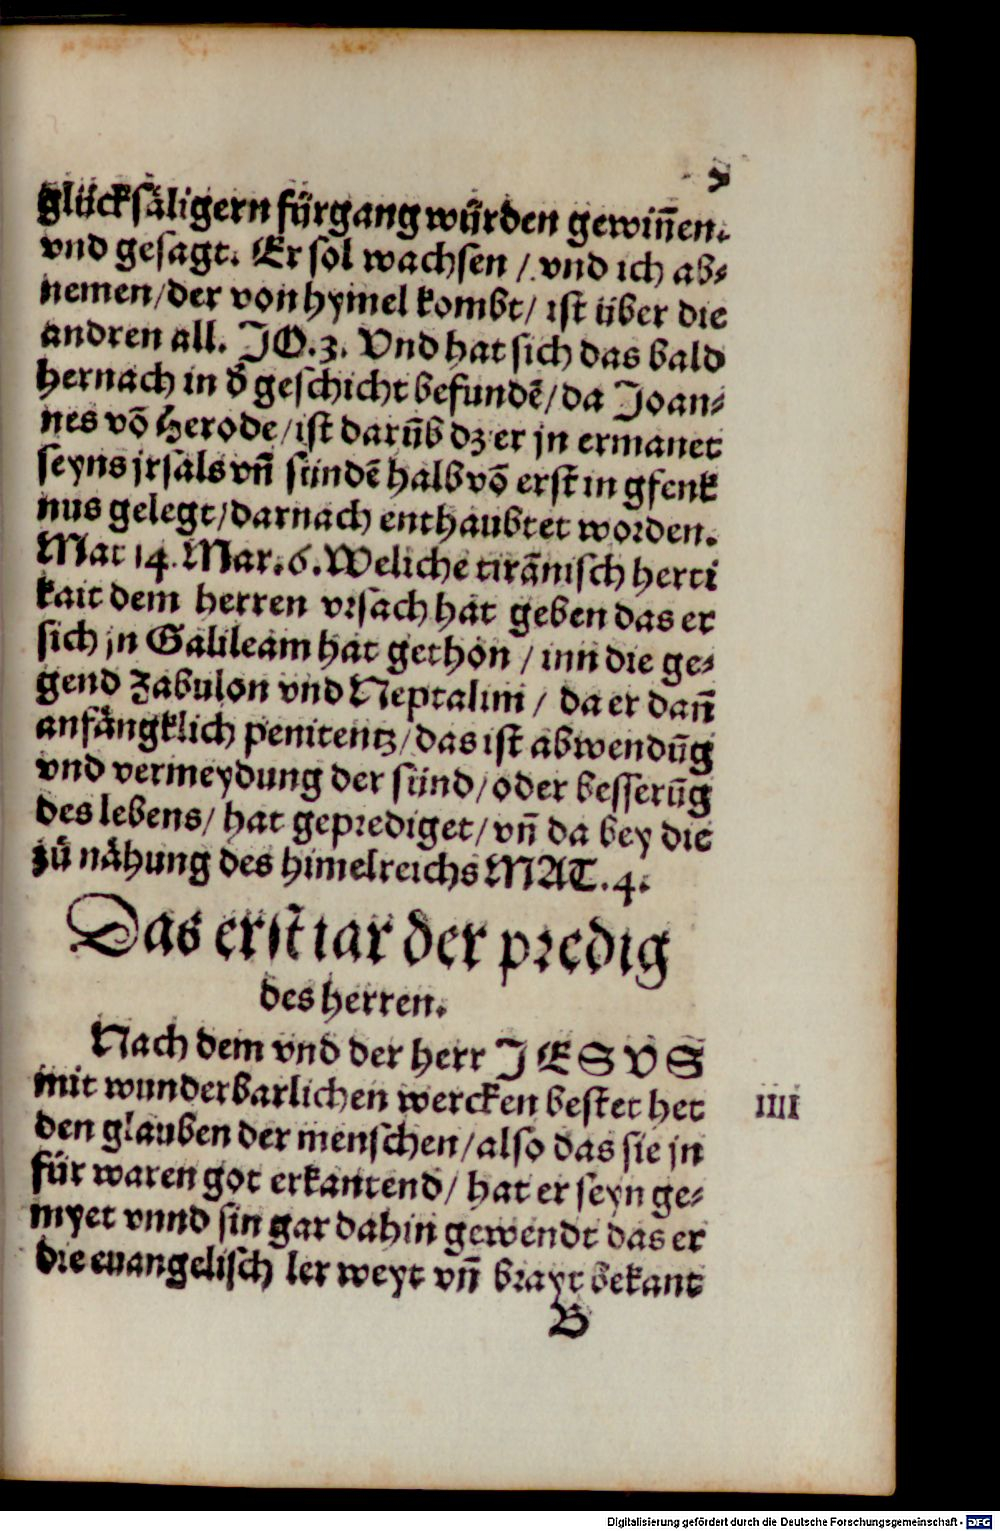 glücksäligern fürgang würden gewiñen.
vnd gesagt. Er sol wachsen / vnd ich ab⸗
nemen/der von hymel kombt/ ist über die
andren all. JO.3. Vnd hat sich das bald
hernach in d̄ geschicht befundē/da Joan⸗
nes vō Herode/ist darūb dz er jn ermanet
seyns jrsals vñ sündē halb vō erst in gfenk
nus gelegt/darnach enthaubtet worden.
Mat 14. Mar.6. Weliche tirānisch herti
kait dem herren vrsach hat geben das er
sich jn Galileam hat gethon / inn die ge⸗
gend Zabulon vnd Neptalim / da er dañ
anfängklich penitentz/das ist abwendūg
vnd vermeydung der sünd/oder besserūg
des lebens/ hat geprediget/vñ da bey die
zů nähung des himelreichs MAT.4.
Das erst iar der predig
des herren.
Nach dem vnd der herr JESVS
mit wunderbarlichen wercken bestet het
IIII
den glauben der menschen/also das sie jn
für waren got erkantend/ hat er seyn ge⸗
myet vnnd sin gar dahin gewendt das er
die euangelisch ler weyt vñ brayt bekant
B
Digitalisierung gefördert durch die Deutsche Forschungsgemeinschaft - DFG